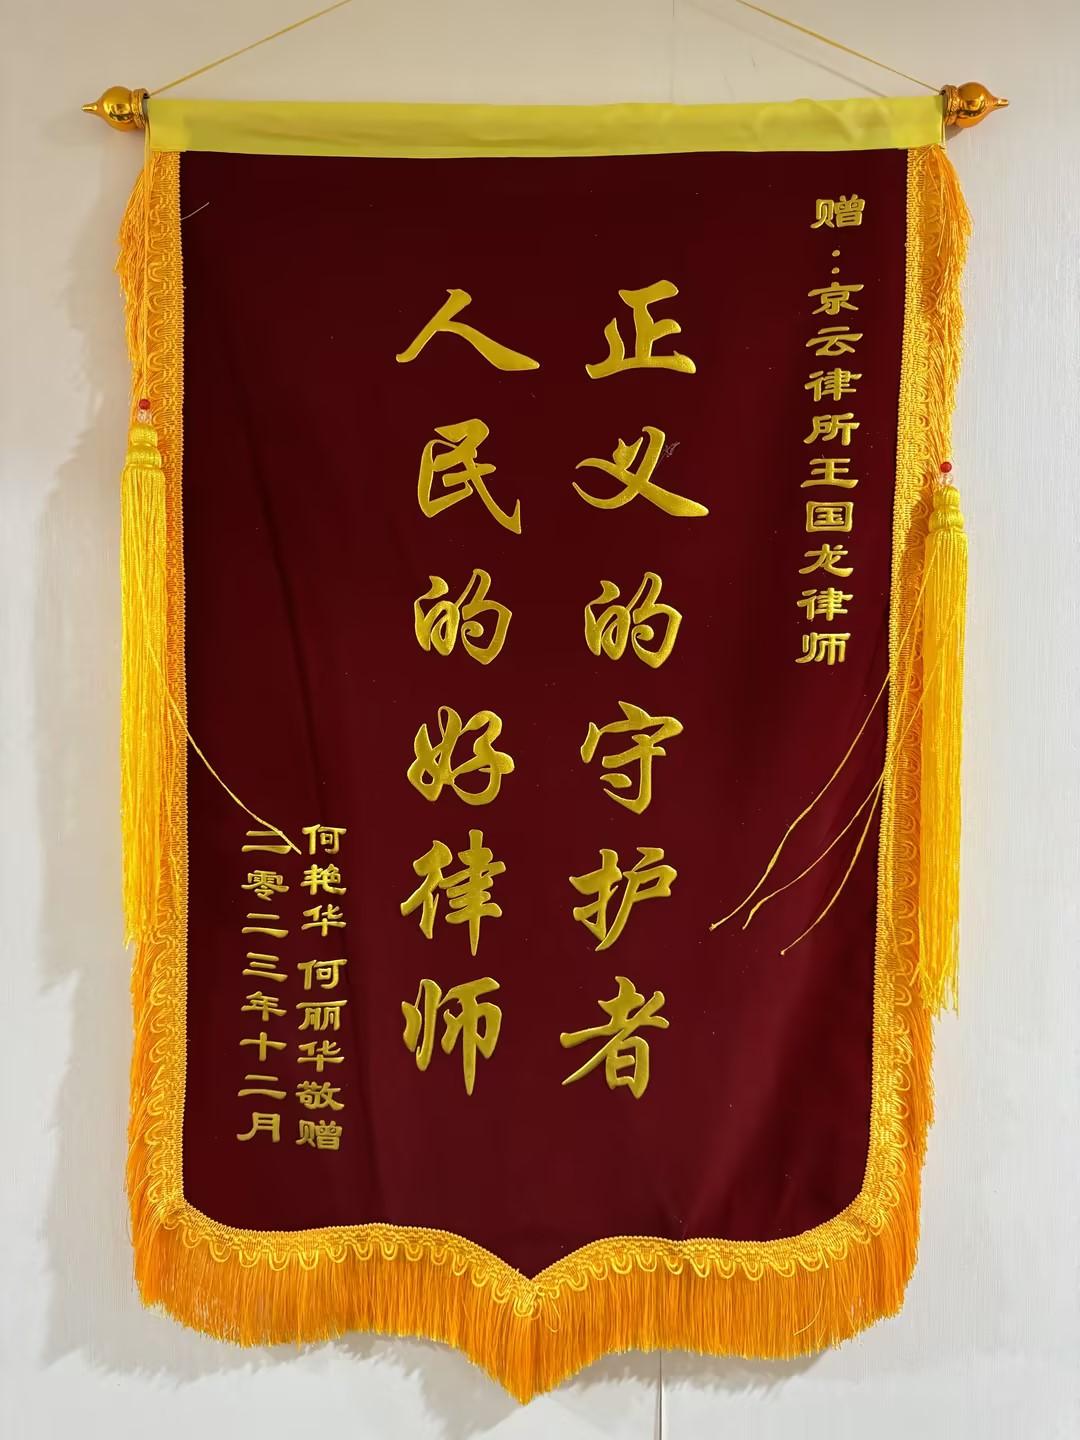 赠：京云律所王国龙律师
正义的守护者
人民的好律师
何艳华 何丽华敬赠
二零二三年十二月